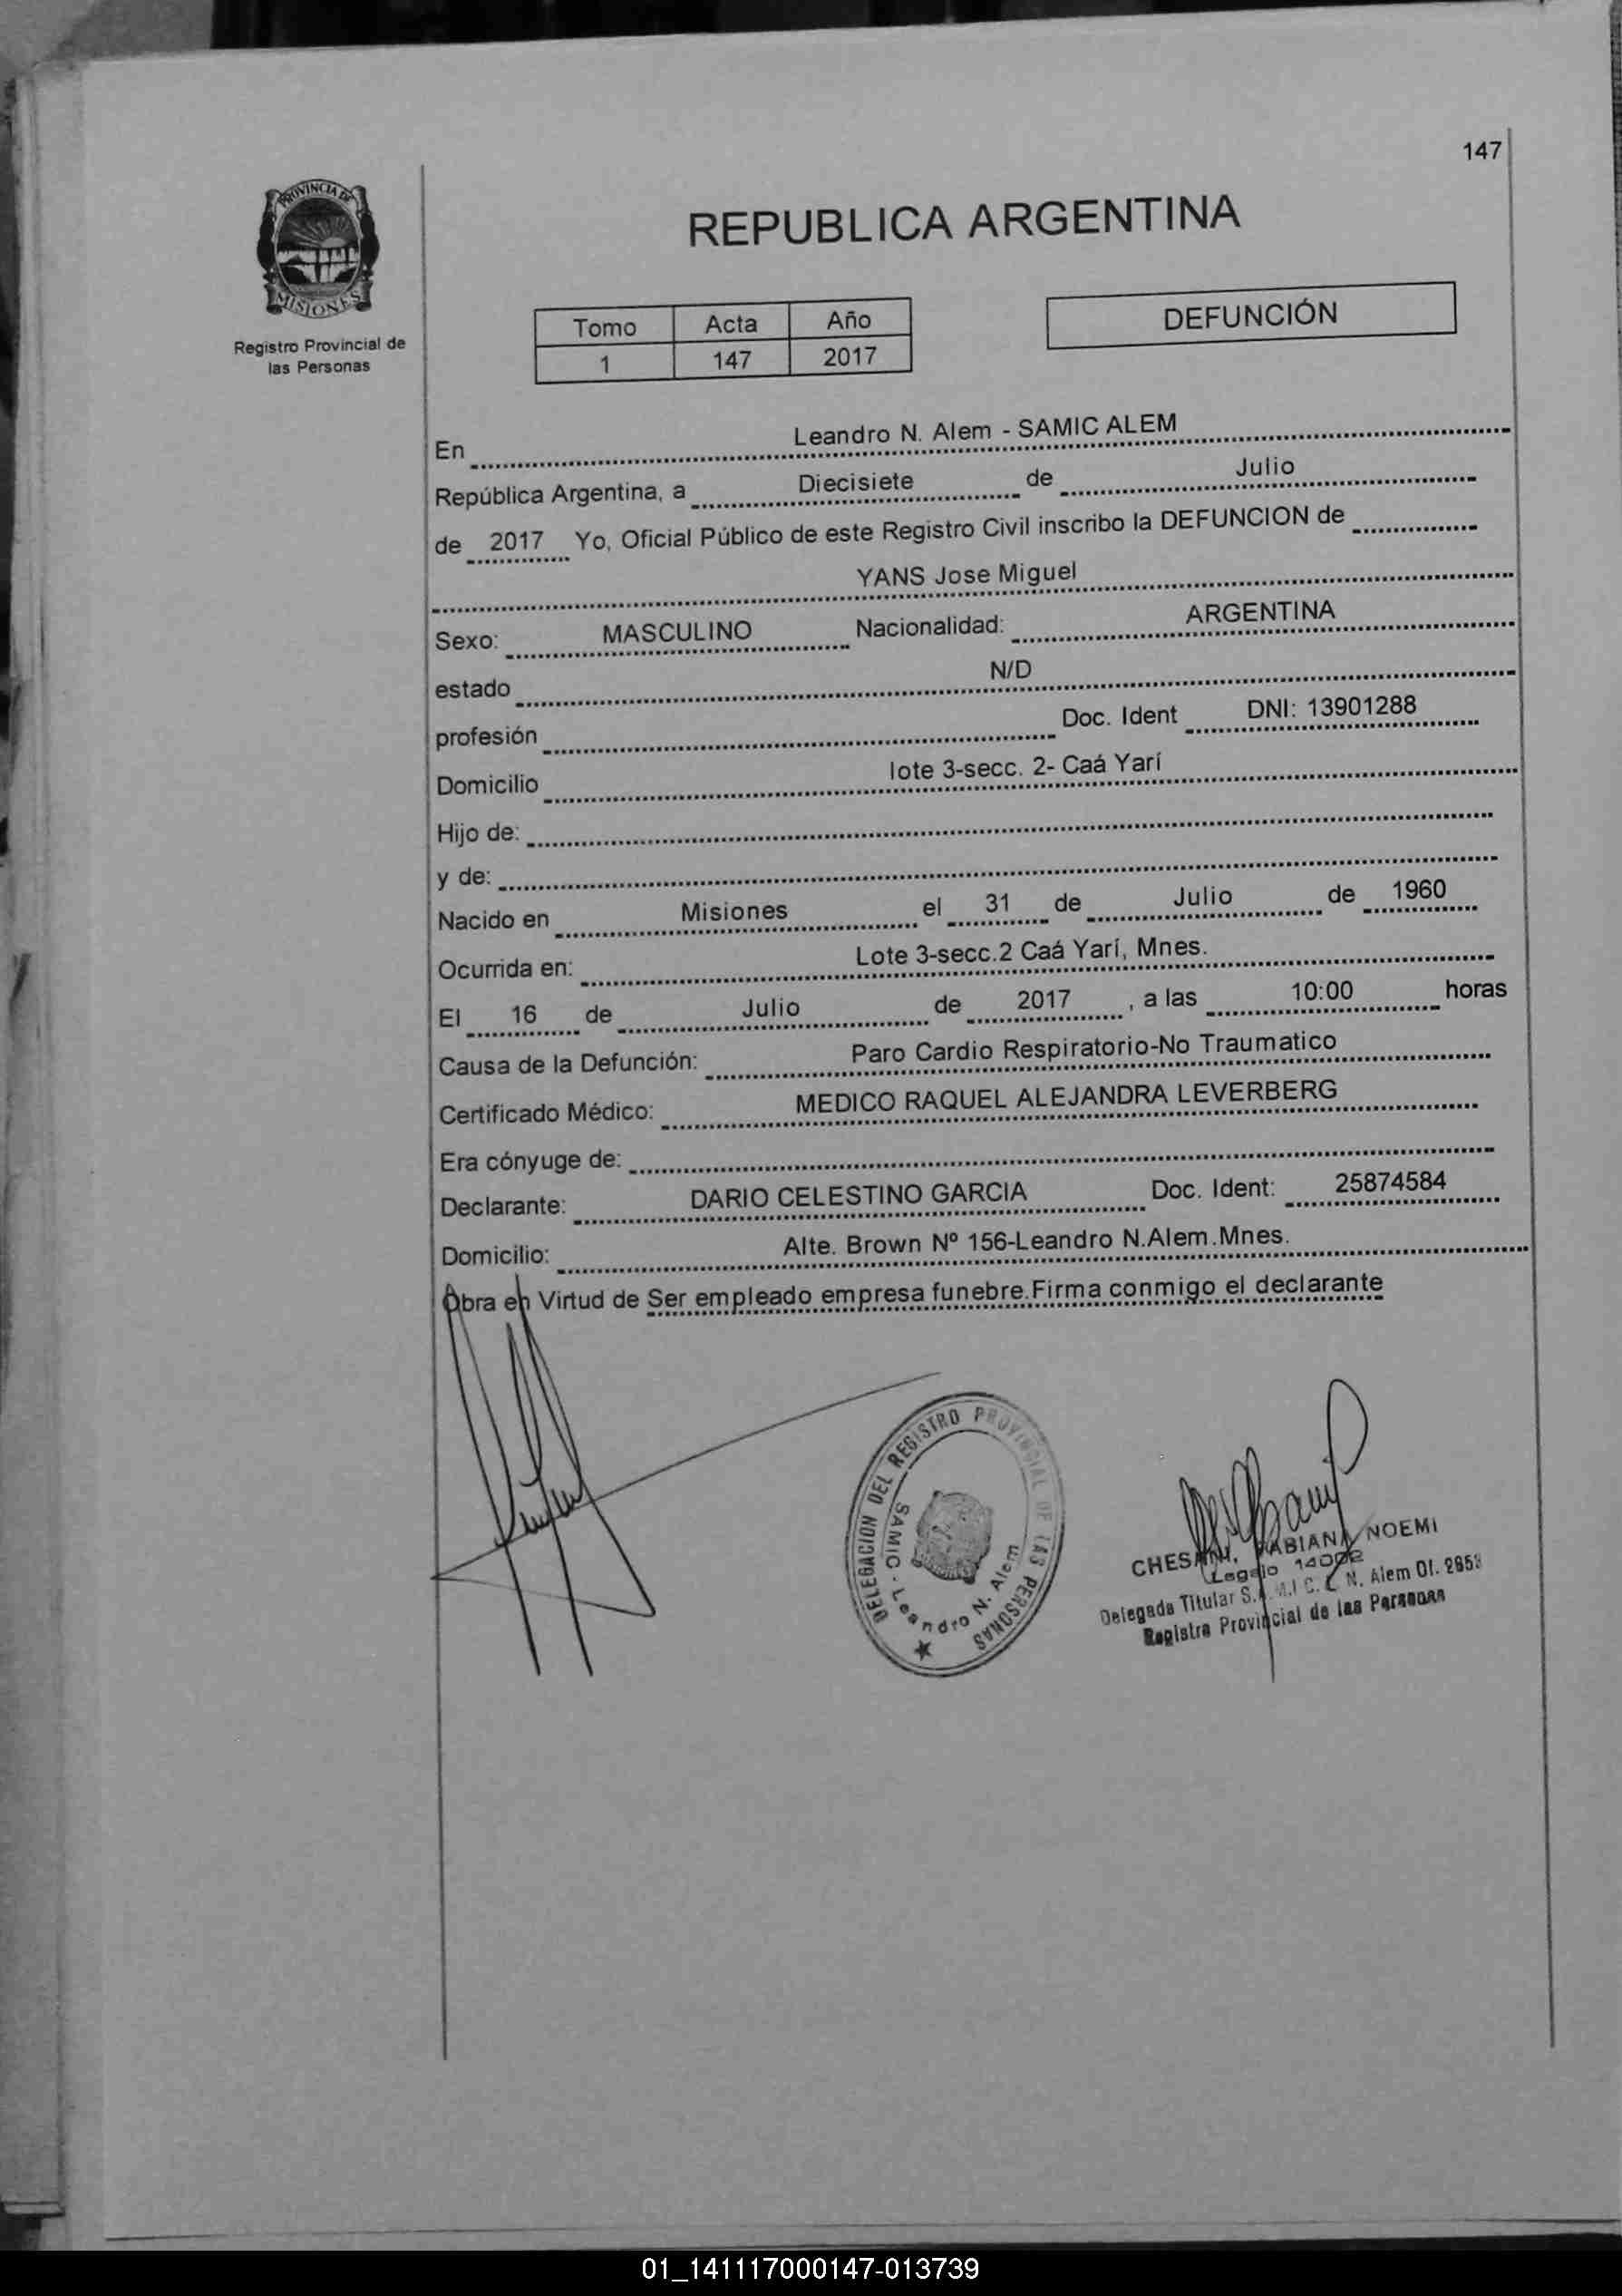 147
PROVINCIA DE
MISIONES
Registro Provincial de
las Personas
REPUBLICA ARGENTINA
Tomo Acta Año
1 147 2017
DEFUNCIÓN
En Leandro N. Alem - SAMIC ALEM
República Argentina, a Diecisiete de Julio
de 2017 Yo, Oficial Público de este Registro Civil inscribo la DEFUNCION de
YANS Jose Miguel
Sexo: MASCULINO Nacionalidad: ARGENTINA
estado N/D
profesión Doc. Ident DNI: 13901288
Domicilio lote 3-secc. 2- Caá Yarí
Hijo de:
y de:
Nacido en Misiones el 31 de Julio de 1960
Ocurrida en: Lote 3-secc.2 Caá Yarí, Mnes.
El 16 de Julio de 2017 , a las 10:00 horas
Causa de la Defunción: Paro Cardio Respiratorio-No Traumatico
Certificado Médico: MEDICO RAQUEL ALEJANDRA LEVERBERG
Era cónyuge de:
Declarante: DARIO CELESTINO GARCIA Doc. Ident: 25874584
Domicilio: Alte. Brown Nº 156-Leandro N.Alem.Mnes.
Obra en Virtud de Ser empleado empresa funebre.Firma conmigo el declarante
DELEGACION DEL REGISTRO PROVINCIAL DE LAS PERSONAS
SAMIC - Leandro N. Alem
FABIANA NOEMI
Legajo 14002
Delegada Titular S.A.M.I.C. L. N. Alem Of.
Registro Provincial de las Personas
01_141117000147-013739